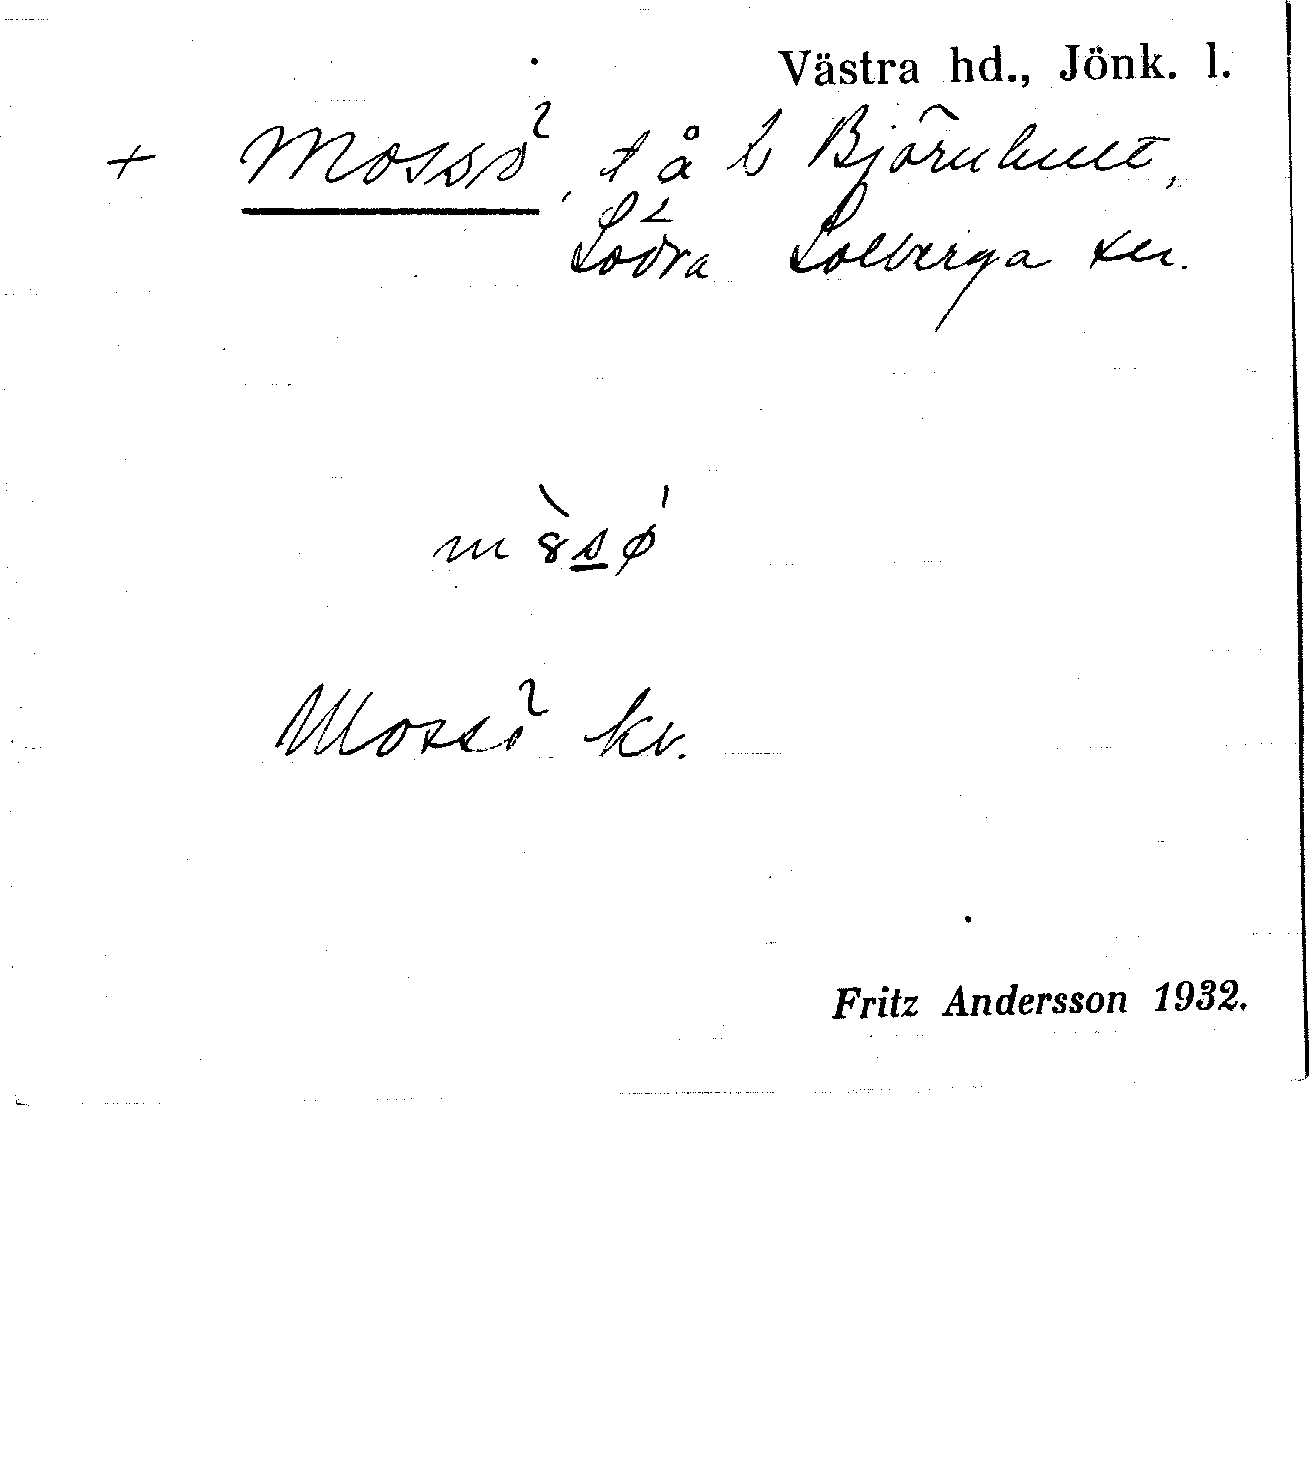 Västra hd., Jönk. l.
+ Mossö, t å Björnhult,
Södra Solberga sn.
Mossö kv.
Fritz Andersson 1932.